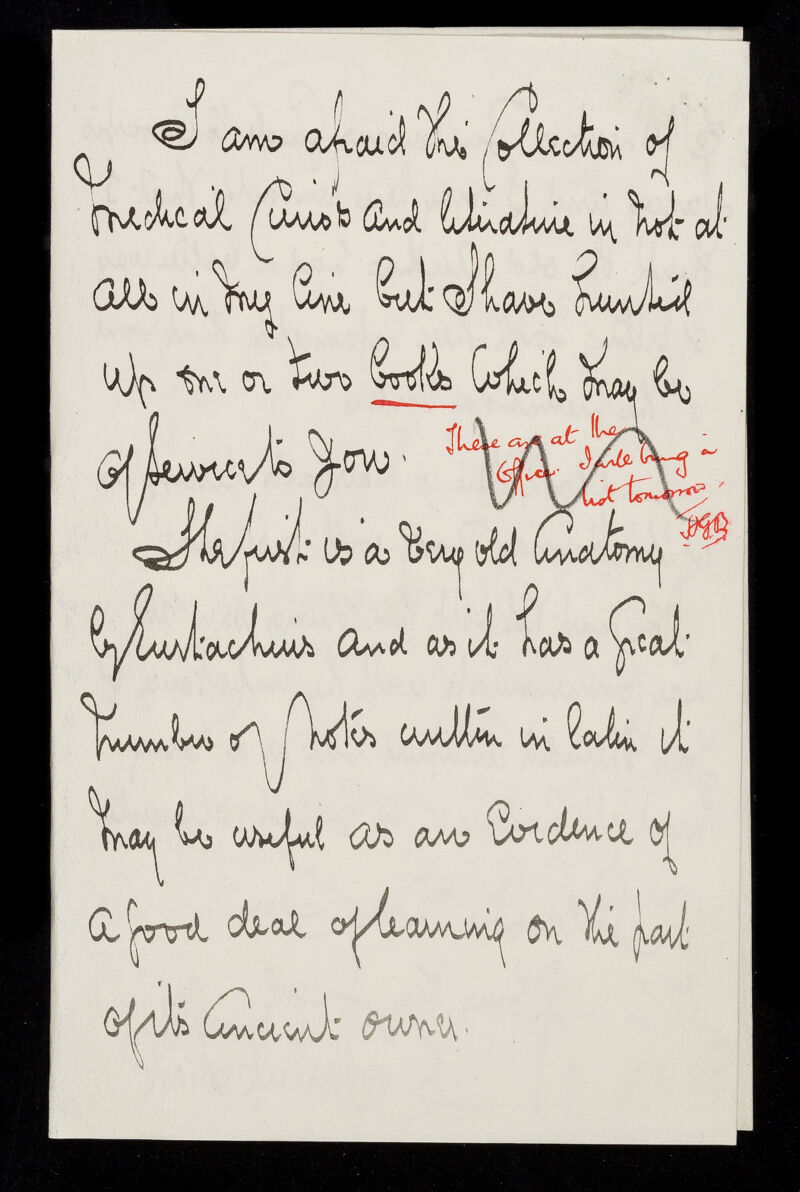 I am afraid the Collection of
Medical Curio's and literature in not at
all in my line but I have hunted
up one or two books which may be
of service to you.
These are at the
Office. I will bring a
list tomorrow.
HGB
The first is a very old Anatomy
by Eustachius and as it has a great
number of notes written in latin it
may be useful as an Evidence of
a good deal of learning on the part
of its Ancient owner.